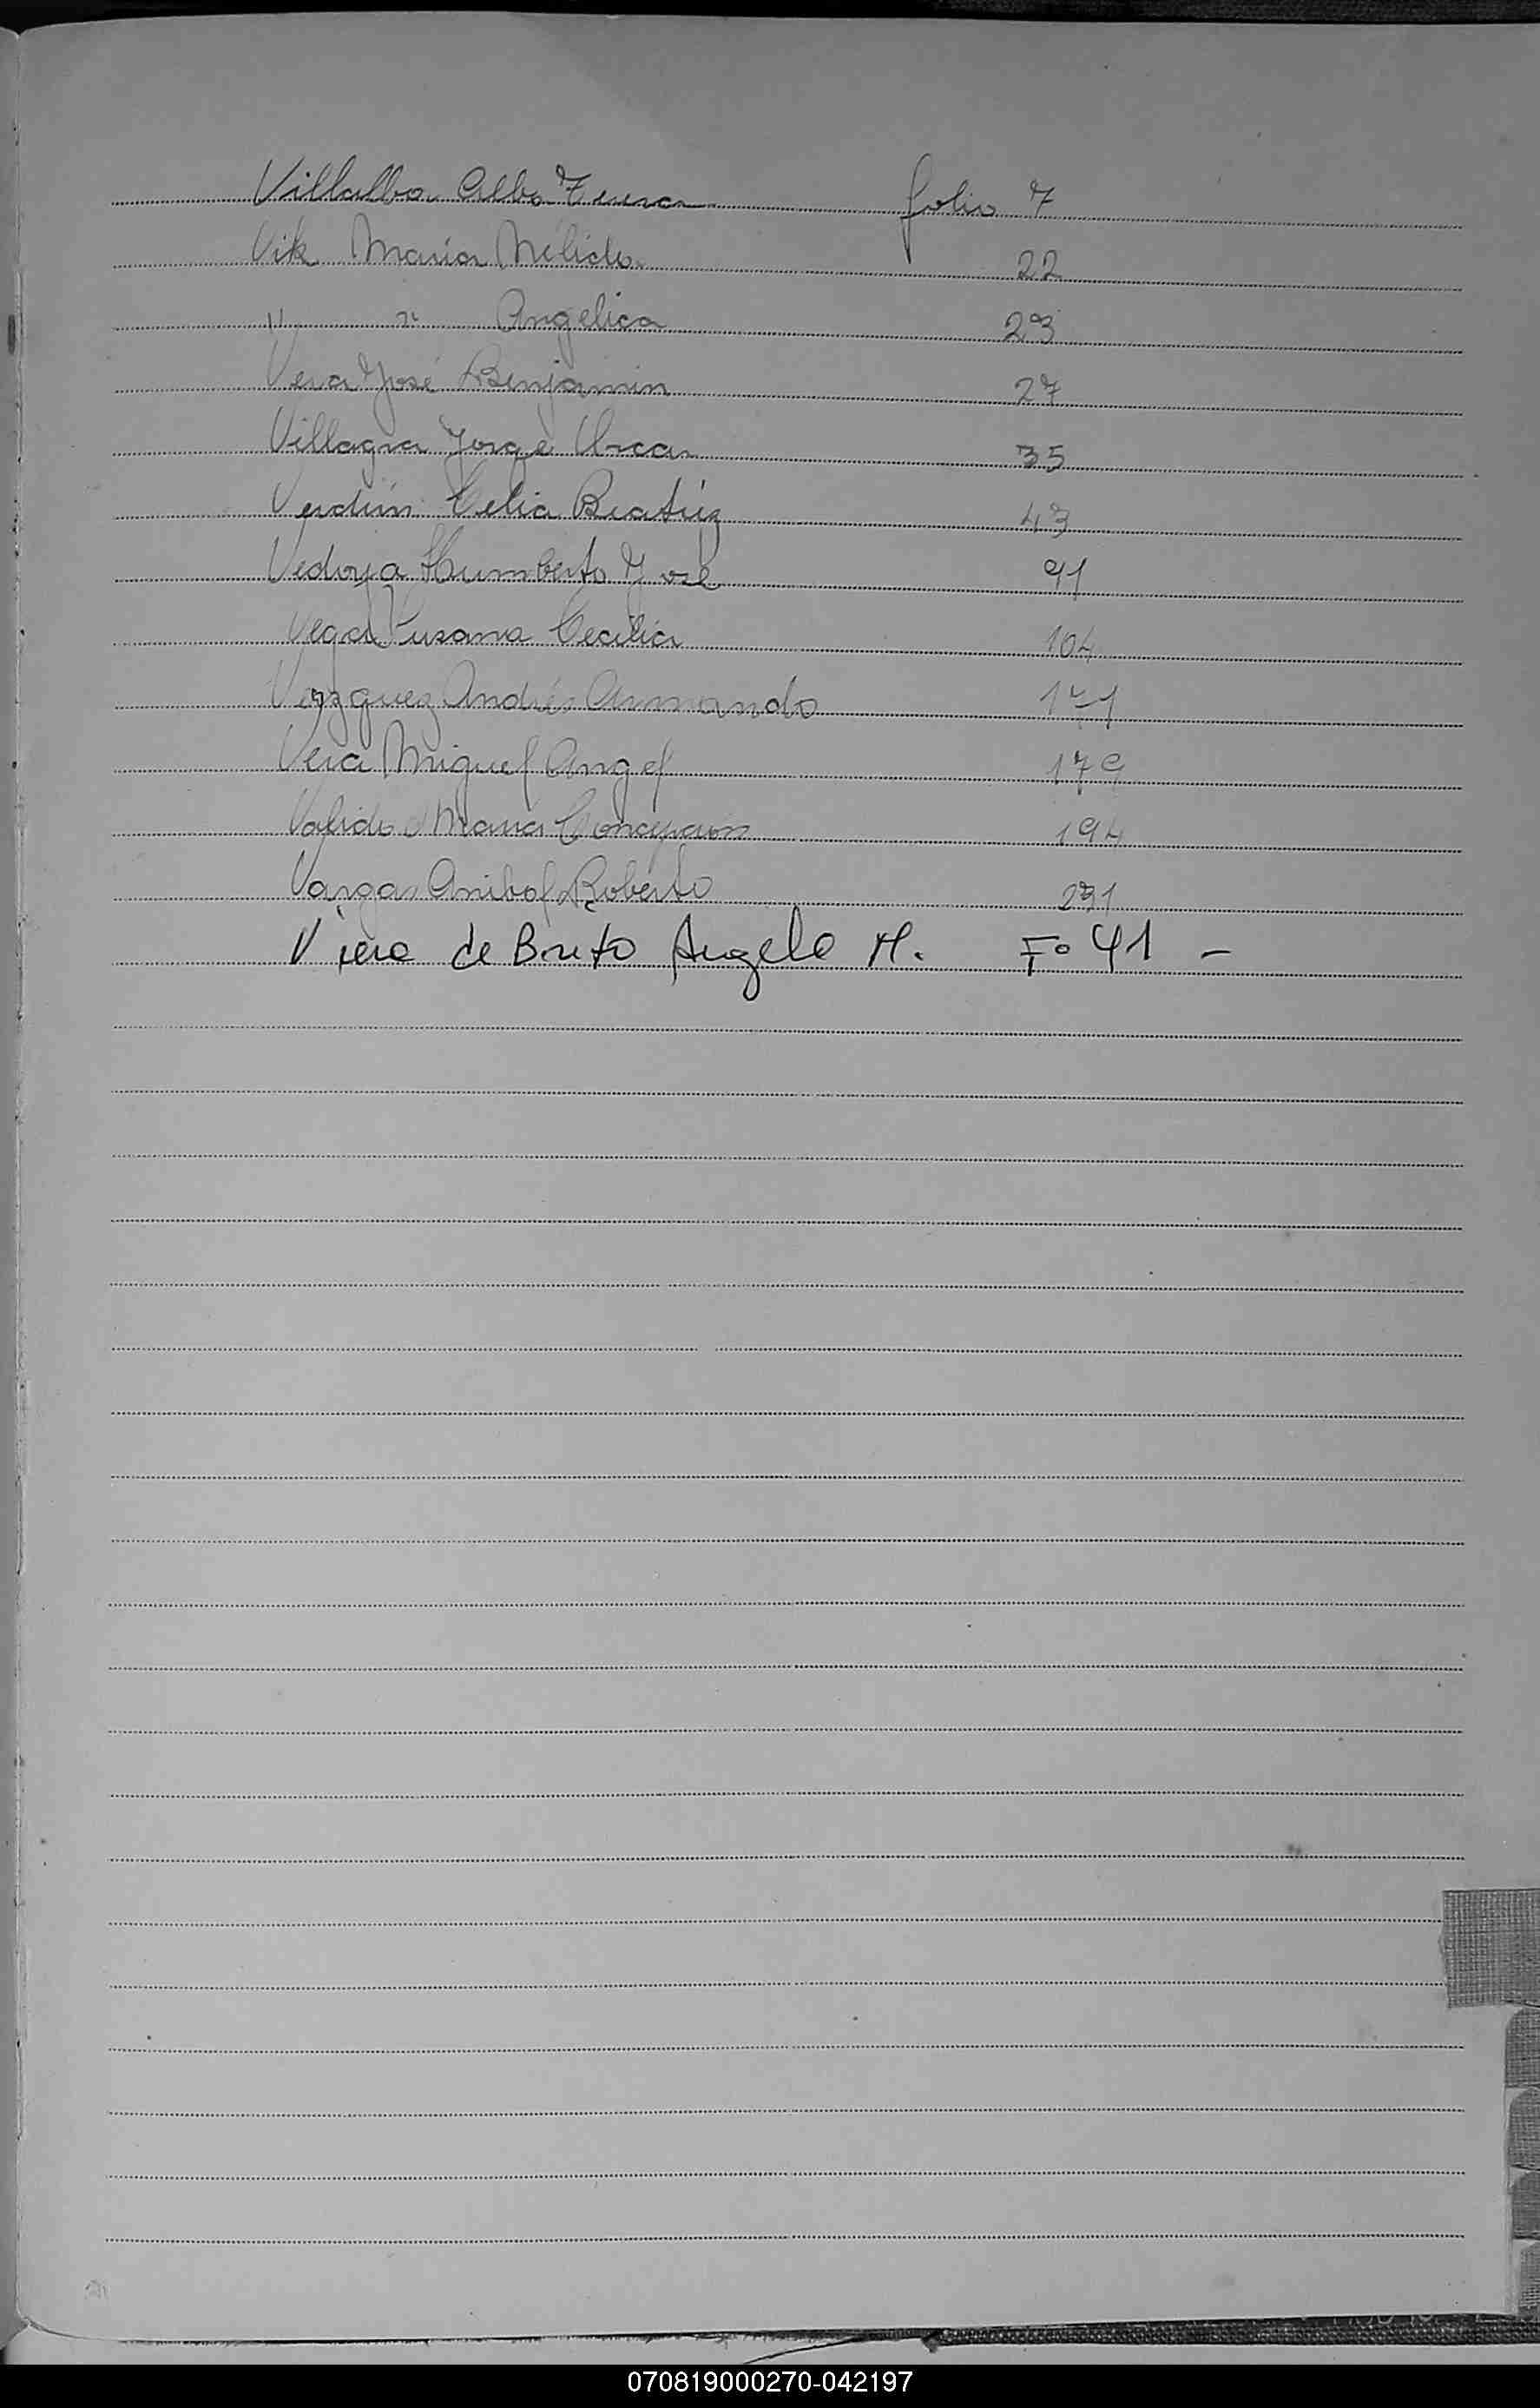 Villalba Alba Teresa folio 7
Vik Maria Nélida 22
" " Angélica 23
Vera José Benjamin 27
Villagra Jorge Oscar 35
Verdún Celia Beatriz 43
Vedoya Humberto José 91
Vega Susana Cecilia 104
Vazquez Andrés Armando 171
Vera Miguel Angel 179
Valido Maria Concepcion 194
Vargas Anibal Roberto 231
Viera de Brito Angela M. Fº 41 -
070819000270-042197